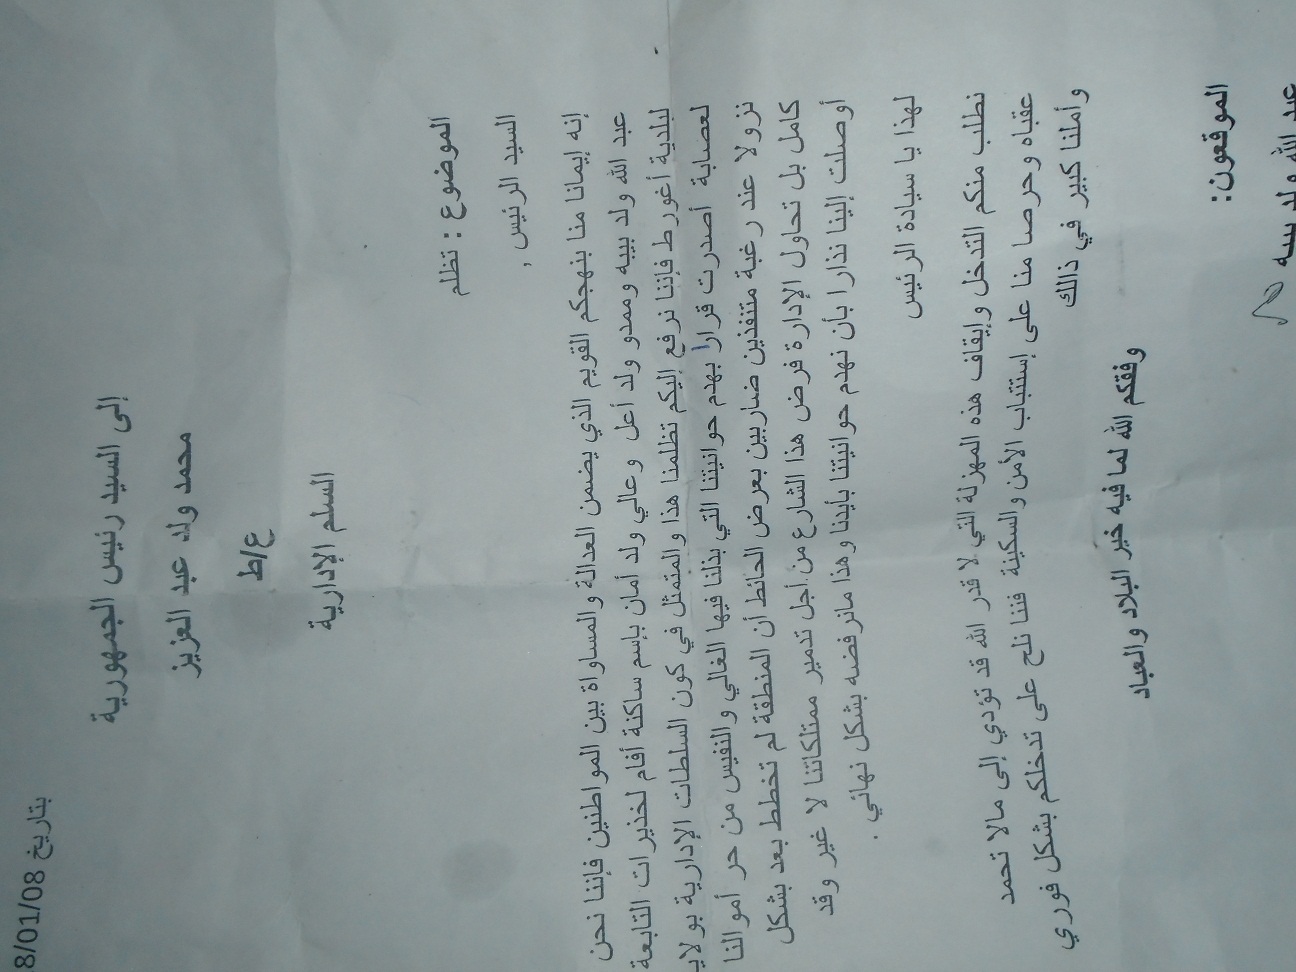 بتاريخ 8/01/08
إلى السيد رئيس الجمهورية
محمد ولد عبد العزيز
ع/ط
السلم الإدارية
الموضوع : تظلم
السيد الرئيس ,
إنه إيمانا منا بنهجكم القويم الذي يضمن العدالة والمساواة بين المواطنين فإننا نحن
عبد الله ولد بيبه وممدو ولد أعل وعالي ولد أمان بإسم ساكنة أفام لخذيرات التابعة
لبلدية أغورط فإننا نرفع إليكم تظلمنا هذا والمتمثل في كون السلطات الإدارية بولاي
لعصابة أصدرت قرارا بهدم حوانيتنا التي بذلنا فيها الغالي والنفيس من حر أموالنا
نزولا عند رغبة متنفذين ضاربين بعرض الحائط أن المنطقة لم تخطط بعد بشكل
كامل بل تحاول الإدارة فرض هذا الشارع من أجل تدمير ممتلكاتنا لا غير وقد
أوصلت إلينا نذارا بأن نهدم حوانيتنا بأيدنا وهذا مانرفضه بشكل نهائي .
لهذا يا سيادة الرئيس
نطلب منكم التدخل وإيقاف هذه المهزلة التي لا قدر الله قد تؤدي إلى مالا تحمد
عقباه وحرصا منا على إستتباب الأمن والسكينة فننا نلح على تدخلكم بشكل فوري
وأملنا كبير في ذالك
وفقكم الله لما فيه خير البلاد والعباد
الموقعون:
عبد الله ولد بيبه